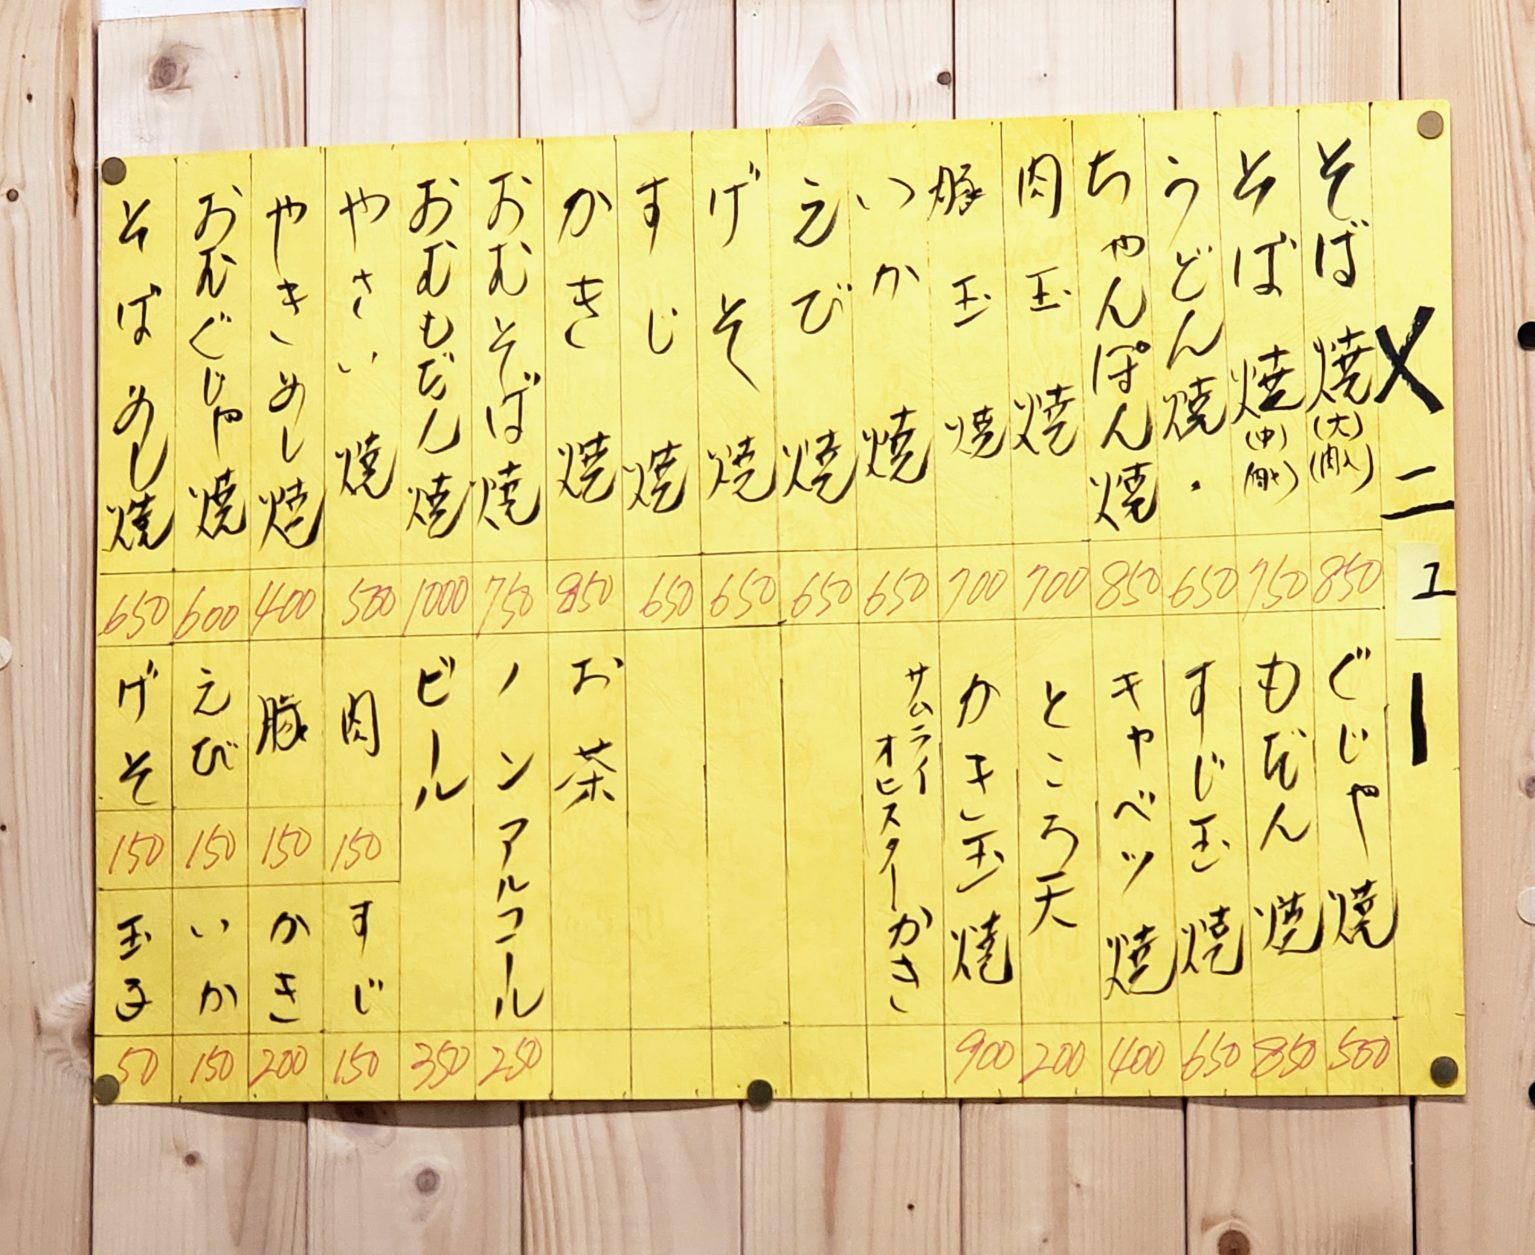 メニュー
そば焼(大)(肉入) 850
そば焼(中)(肉入) 750
うどん焼 650
ちゃんぽん焼 850
肉玉焼 700
豚玉焼 700
いか焼 650
えび焼 650
げそ焼 650
すじ焼 650
かき焼 850
おむそば焼 750
おむもだん焼 1000
やさい焼 500
やきめし焼 400
おむぐじゃ焼 600
そばめし焼 650
ぐじゃ焼 500
もだん焼 850
すじ玉焼 650
キャベツ焼 400
ところ天 200
かき玉焼 900
サムライ
オヒスターかき
お茶
ノンアルコール 250
ビール 350
肉 150
豚 150
えび 150
げそ 150
すじ 150
かき 200
いか 150
玉子 50